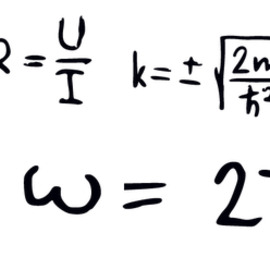 R = U/I
k = ± √(2m/ħ²
ω = 2